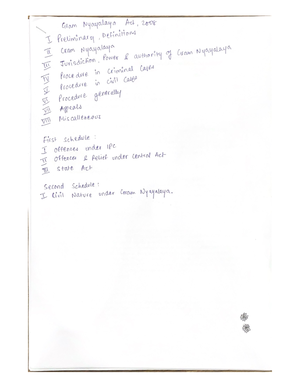 Gram Nyayalaya Act, 2008
I Preliminary, Definitions
II Gram Nyayalaya
III Jurisdiction, Power & authority of Gram Nyayalaya
IV Procedure in Criminal Cases
V Procedure in Civil Cases
VI Procedure generally
VII Appeals
VIII Miscellaneous
First Schedule :
I Offences under IPC
II Offences & Relief under Central Act
III State Act
Second Schedule :
I Civil Nature under Gram Nyayalaya.